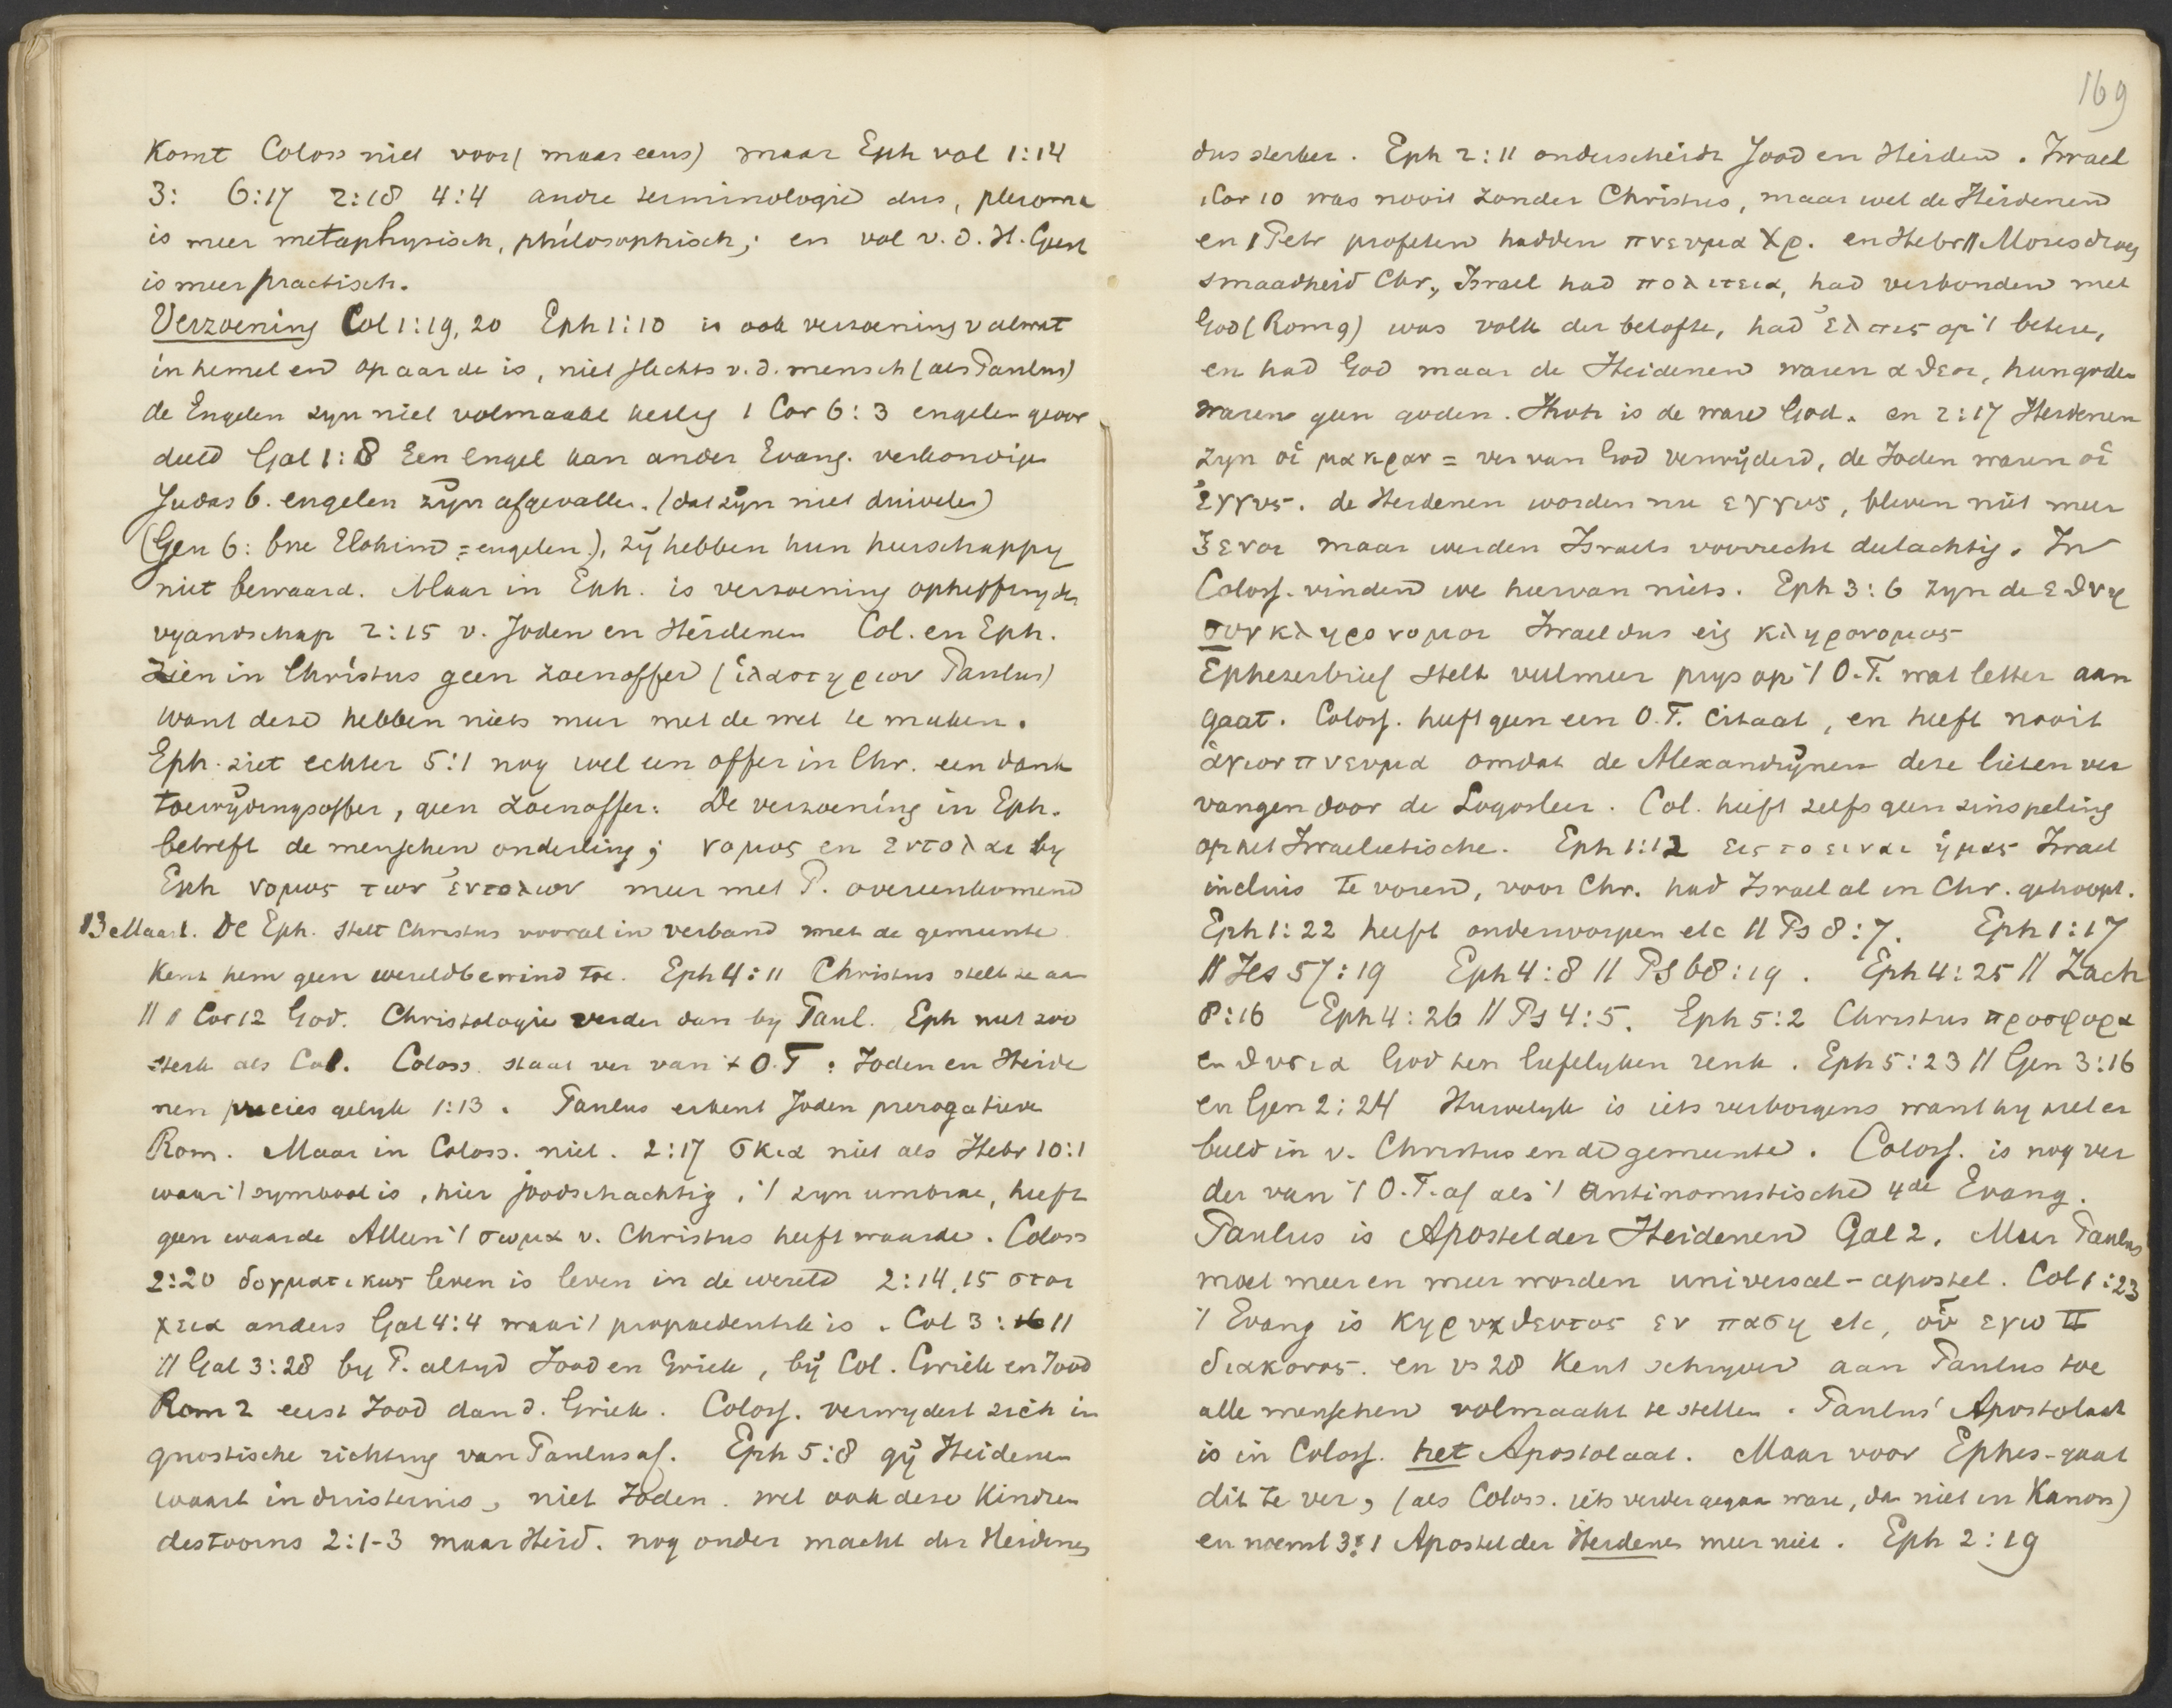 Komt Coloss niet voor (maar eens) maar Eph vol 1:14
3: 6:17 2:18 4:4 andre terminologie dus, pleroma
is meer metaphysisch, philosophisch; en vol v. d. H. Geest
is meer practisch.
Verzoening Col 1:19, 20 Eph 1:10 is ook verzoening v alwat
in hemel en op aarde is, niet slechts v. d. mensch (als Paulus)
de Engelen zyn niet volmaakt heilig 1 Cor 6:3 engelen geoor
deeld Gal 1:8 Een engel kan ander Evang. verkondigen
Judas 6. engelen zijn afgevallen. (dat zijn niet duivelen)
(Gen 6: bne Elohim = engelen), zij hebben hun heerschappy
niet bewaard. Maar in Eph. is verzoening opheffing der
vyandschap 2:15 v. Joden en Heidenen Col. en Eph.
zien in Christus geen zoenoffer (ἱλαστηριον Paulus)
want deze hebben niets meer met de wet te maken.
Eph. ziet echter 5:1 nog wel een offer in Chr. een dank
toewijdingsoffer, geen zoenoffer: De verzoening in Eph.
betreft de menschen onderling; νομος en εντολαι by
Eph νομος των ἐντολων meer met P. overeenkomend
13 Maart. De Eph. stelt Christus vooral in verband met de gemeente
Kent hem geen wereldbewind toe. Eph 4:11 Christus stelt ze aan
// 1 Cor 12 God. Christologie verder dan by Paul. Eph niet zoo
sterk als Col. Coloss. staat ver van 't O.T: Joden en Heide
nen precies gelyk 1:13. Paulus erkent Joden prerogatieve
Rom. Maar in Coloss. niet. 2:17 σκια niet als Hebr 10:1
waar 't symbool is, hier joodschachtig, 't zyn umbrae, heeft
geen waarde Alleen 't σωμα v. Christus heeft waarde. Coloss
2:20 δογματικως leven is leven in de wereld 2:14,15 στοι
χεια anders Gal 4:4 waar 't propaedeutik is. Col 3:11
// Gal 3:28 by P. altyd Jood en Griek, bij Col. Griek en Jood
Rom 2 eerst Jood dan d. Griek. Coloss. verwydert zich in
gnostische richting van Paulus af. Eph 5:8 gij Heidenen
waart in duisternis, niet Joden. wel ook deze Kindren
des toorns 2:1-3 maar Heid. nog onder macht der Heidenen
169
dus sterker. Eph 2:11 onderscheidt Jood en Heiden. Israel
1 Cor 10 was nooit zonder Christus, maar wel de Heidenen
en 1 Petr profeten hadden πνευμα Χρ. en Hebr 11 Moses droeg
smaadheid Chr., Israel had πολιτεια, had verbonden met
God (Rom 9) was volk der belofte, had ἐλπις op 't betere,
en had God maar de Heidenen waren αθεοι, hun goden
waren geen goden. Jhvh is de ware God. en 2:17 Heidenen
zyn οἱ μακραν = ver van God verwijderd, de Joden waren οἱ
ἐγγυς. de Heidenen worden nu εγγυς, bleven niet meer
ξενοι maar werden Israels voorrecht deelachtig. In
Coloss. vinden we hiervan niets. Eph 3:6 zyn de εθνη
συνκληρονομοι Israel dus eig κληρονομος
Ephezerbrief stelt veelmeer prys op 't O.T. wat letter aan
gaat. Coloss. heeft geen een O.T. citaat, en heeft nooit
ἁγιον πνευμα omdat de Alexandrijnen deze lieten ver
vangen door de Logosleer. Col. heeft zelfs geen zinspeling
op het Israelietische. Eph 1:12 εις το ειναι ἡμας Israel
incluis te voren, voor Chr. had Israel al in Chr. gehoopt.
Eph 1:22 heeft onderworpen etc // Ps 8:7. Eph 1:17
// Jes 57:19 Eph 4:8 // Ps 68:19. Eph 4:25 // Zach
8:16 Eph 4:26 // Ps 4:5. Eph 5:2 Christus προσφορα
en θυσια God ten liefelyken reuk. Eph 5:23 // Gen 3:16
en Gen 2:24 Huwelyk is iets verborgens want hy ziet er
beeld in v. Christus en de gemeente. Coloss. is nog ver
der van 't O.T. af als 't antinomistische 4de Evang.
Paulus is Apostel der Heidenen Gal 2. Maar Paulus
moet meer en meer worden universeel-apostel. Col 1:23
't Evang is κηρυχθεντος εν παση etc, οὑ εγω Π
διακονος. en vs 28 Kent schryver aan Paulus toe
alle menschen volmaakt te stellen. Paulus' Apostolaat
is in Coloss. het Apostolaat. Maar voor Ephes-gaat
dit te ver, (als Coloss. iets verder gegaan ware, dan niet in Kanon)
en noemt 3:1 Apostel der Heidenen meer niet. Eph 2:19